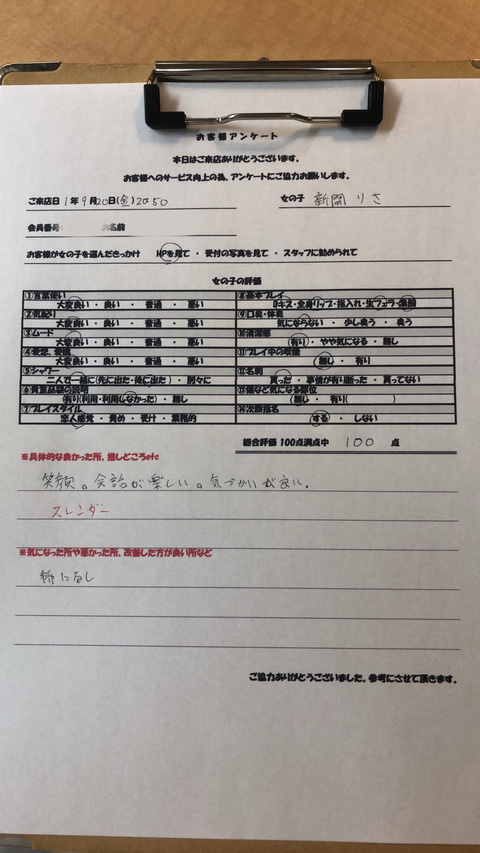 お客様アンケート
本日はご来店ありがとうございます。
お客様へのサービス向上の為、アンケートにご協力お願いします。
ご来店日 1年 9月 20日(金) 20:50 女の子 新開 りさ
会員番号: お名前
お客様が女の子を選んだきっかけ HPを見て ・ 受付の写真を見て ・ スタッフに勧められて
女の子の評価
①言葉使い
大変良い ・ 良い ・ 普通 ・ 悪い
②気配り
大変良い ・ 良い ・ 普通 ・ 悪い
③ムード
大変良い ・ 良い ・ 普通 ・ 悪い
④愛想、愛嬌
大変良い ・ 良い ・ 普通 ・ 悪い
⑤シャワー
二人で一緒に(先に出た・後に出た) ・ 別々に
⑥貴重品袋の説明
有り(利用・利用しなかった) ・ 無し
⑦プレイスタイル
恋人感覚 ・ 責め ・ 受け ・ 業務的
⑧基本プレイ
Dキス・全身リップ・指入れ・生フェラ・素股
⑨口臭・体臭
気にならない ・ 少し臭う ・ 臭う
⑩清潔感
有り ・ やや気になる ・ 無し
⑪プレイ中の喫煙
無し ・ 有り
⑫名刺
貰った ・ 事情が有り断った ・ 貰ってない
⑬傷など気になる部位
無し ・ 有り( )
⑭次回指名
する ・ しない
総合評価 100点満点中 100 点
※具体的な良かった所、推しどころetc
笑顔。会話が楽しい。気づかいが良い.
スレンダー
※気になった所や悪かった所、改善した方が良い所など
特になし
ご協力ありがとうございました。参考にさせて頂きます。